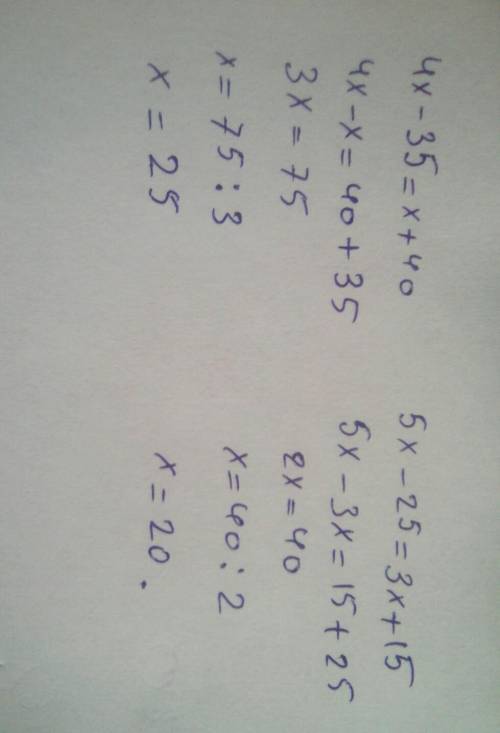 4x - 35 = x + 40
4x - x = 40 + 35
3x = 75
x = 75 : 3
x = 25
5x - 25 = 3x + 15
5x - 3x = 15 + 25
2x = 40
x = 40 : 2
x = 20.